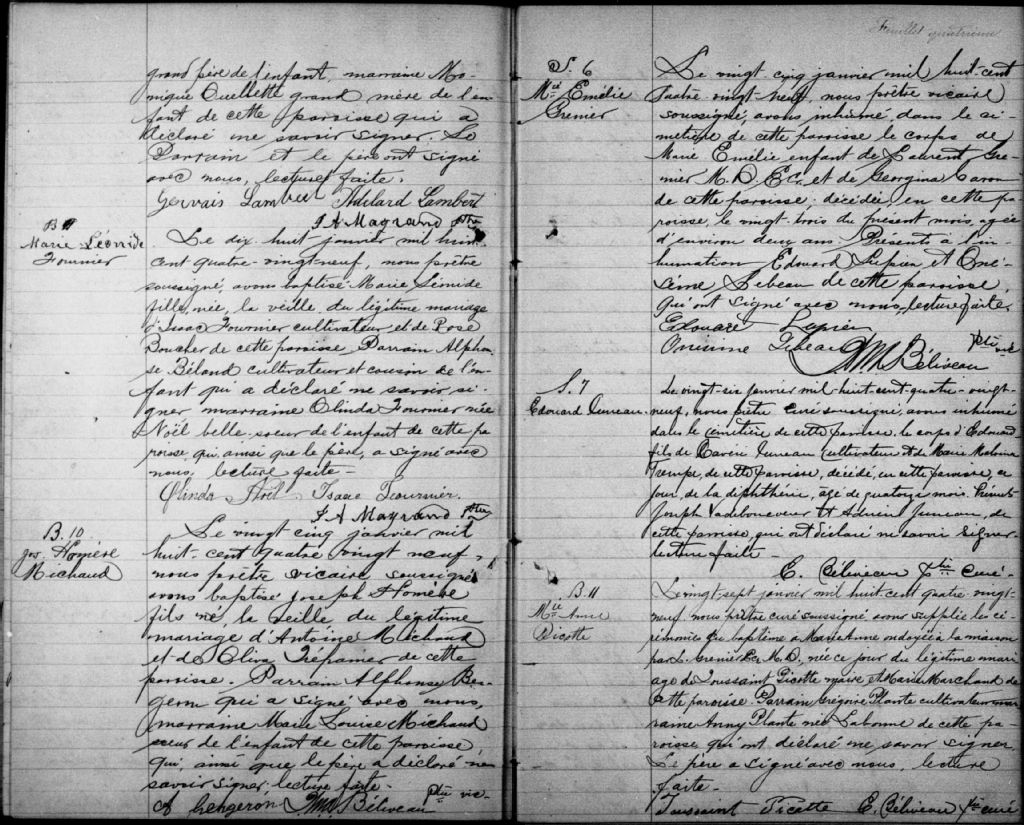 grand père de l'enfant, marraine Mo-
nique Ouellette grand mère de l'en-
fant de cette paroisse qui a
déclaré ne savoir signer. Le
Parrain et le père ont signé
avec nous, lecture faite.
Gervais Lambert Adelard Lambert
J A Mayrand Ptre
B 9
Marie Léonide
Fournier
Le dix-huit janvier mil huit
cent quatre-vingt-neuf, nous prêtre
soussigné, avons baptisé Marie Léonide
fille, née, la veille du légitime mariage
d'Isaac Fournier cultivateur et de Rose
Boucher de cette paroisse. Parrain Alphon-
se Béland cultivateur et cousin de l'en-
fant qui a déclaré ne savoir si-
gner marraine Olinda Fournier née
Noël belle-soeur de l'enfant de cette pa-
roisse, qui, ainsi que le père, a signé avec
nous, lecture faite -
Olinda Noël Isaac Fournier.
J A Mayrand Ptre
B. 10
Jos Homère
Michaud
Le vingt cinq janvier mil
huit-cent quatre vingt neuf,
nous prêtre vicaire soussigné
avons baptisé Joseph Homère
fils né, la veille du légitime
mariage d'Antoine Michaud
et de Oliva Trépanier de cette
paroisse. Parrain Alphonse Ber-
geron qui a signé avec nous,
marraine Marie Louise Michaud
soeur de l'enfant de cette paroisse,
qui, ainsi que le père a déclaré ne
savoir signer, lecture faite.
A bergeron Béliveau Ptre vic-
Feuillet quatrième
S. 6
Mie Emélie
Grenier
Le vingt-cinq janvier mil huit-cent
quatre vingt-neuf, nous prêtre vicaire
soussigné, avons inhumé, dans le ci-
metière de cette paroisse le corps de
Marie Emélie enfant de Laurent Gre-
nier M.D. Ecr. et de Georgina Caron
de cette paroisse; décédée, en cette pa-
roisse, le vingt-trois du présent mois, agée
d'environ deux ans. Présents à l'in-
humation Edouard Lupien et Oné-
sime Lebeau de cette paroisse,
qui ont signé avec nous, lecture faite.
Edouard Lupien
Onisime Lebeau
Béliveau Ptre vic
S. 7
Edouard Juneau.
Le vingt-six janvier mil-huit-cent-quatre-vingt-
neuf, nous prêtre curé soussigné, avons inhumé
dans le cimetière de cette paroisse, le corps d'Edouard
fils de Xavier Juneau cultivateur et de Marie Malvina
Trempe, de cette paroisse, décédé, en cette paroisse, ce
jour, de la diphthérie, agé de quatorze mois. Présents
Joseph Vadeboncoeur et Adrien Juneau, de
cette paroisse, qui ont déclaré ne savoir signer.
lecture faite -
E. Béliveau Ptre curé-
B. 11
Mie Anne
Picotte
Le vingt-sept janvier mil huit cent quatre-vingt-
neuf, nous prêtre curé soussigné, avons supplée les cé-
rémonies du baptême à Marie Anne ondoyée à la maison
par L. Grenier Ecr. M.D., née ce jour du légitime mari-
age de Toussaint Picotte et Marie Marchand de
cette paroisse. Parrain Grégoire Plante cultivateur mar-
raine Anny Plante née Labonne de cette pa-
roisse qui ont déclaré ne savoir signer.
Le père a signé avec nous, lecture
faite.
Toussaint Picotte E. Béliveau Ptre curé